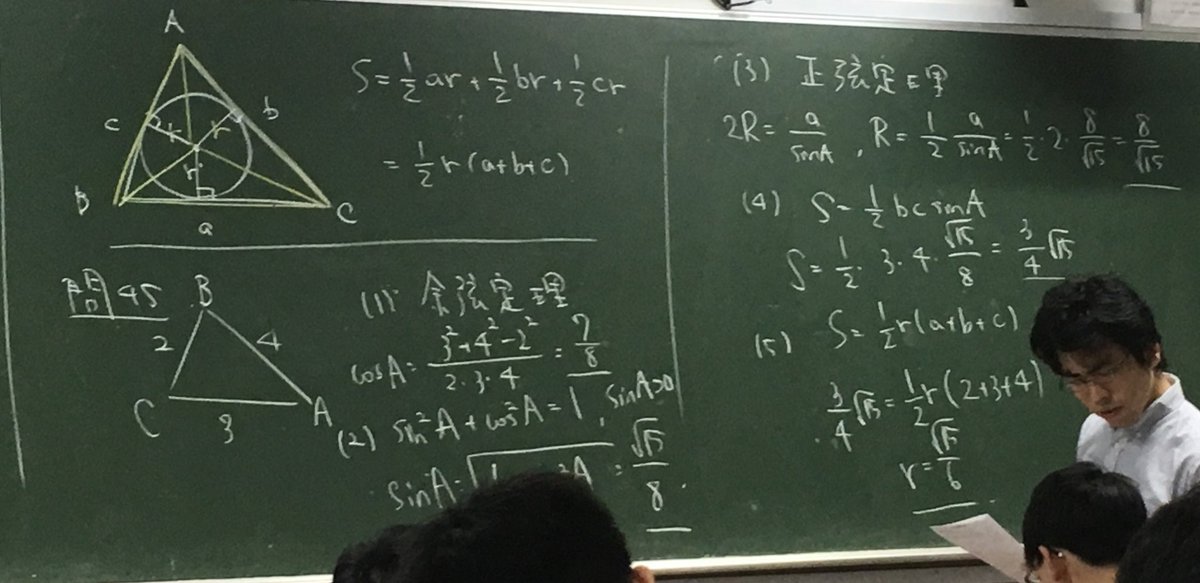 A
c
b
r
r
r
B
C
a
S = 1/2 ar + 1/2 br + 1/2 cr
= 1/2 r (a+b+c)
問 45
B
2
4
C
3
A
(1) 余弦定理
cosA = (3² + 4² - 2²)/(2·3·4) = 7/8
(2) sin²A + cos²A = 1, sinA>0
sinA = √(1 ²A) = √15/8
(3) 正弦定理
2R = a/sinA , R = 1/2 a/sinA = 1/2 · 2 · 8/√15 = 8/√15
(4) S = 1/2 bc sinA
S = 1/2 · 3 · 4 · √15/8 = 3/4 √15
(5) S = 1/2 r (a+b+c)
3/4 √15 = 1/2 r (2+3+4)
r = √15/6